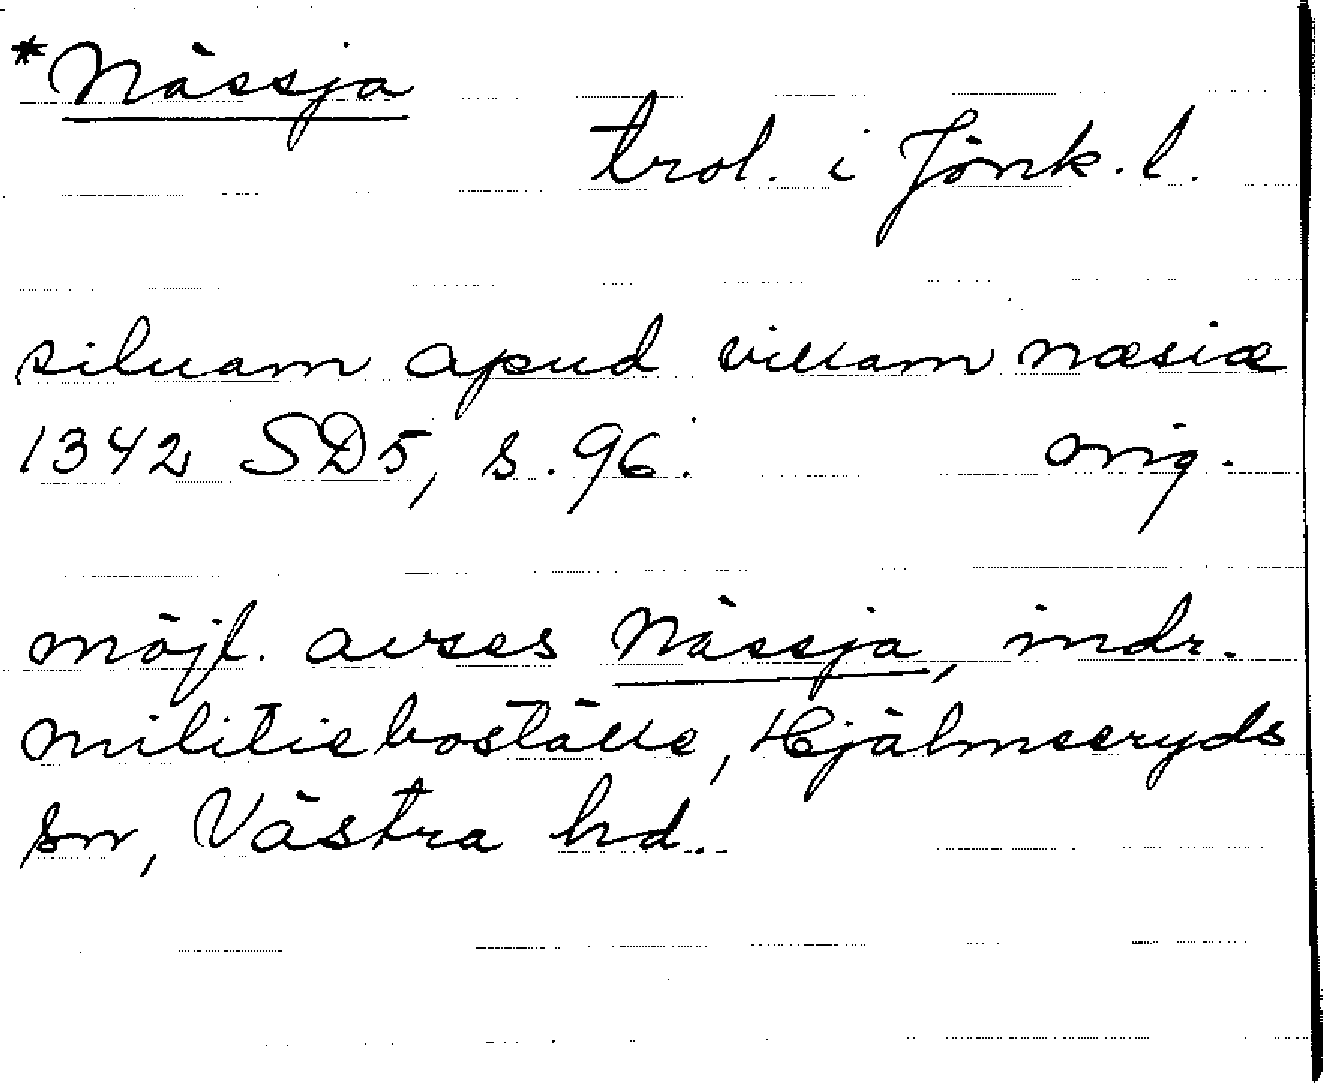 *Nässja
trol. i Jönk. l.
siluam apud villam næsiæ
1342 SD5, s. 96. orig.
möjl. avses Nässja, indr.
militieboställe, Hjälmseryds
sn, Västra hd.